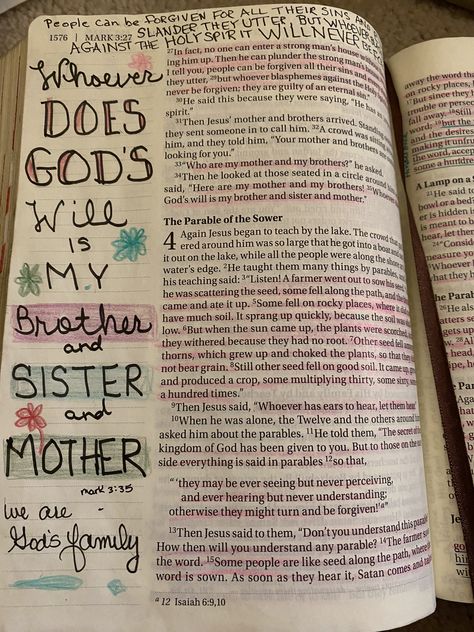 People can be FORGIVEN FOR ALL THEIR SINS AND
SLANDER THEY UTTER, BUT WHOEVER
AGAINST THE HOLY SPIRIT WILL NEVER BE
1576 | MARK 3:27
Whoever
DOES
GOD'S
Will
IS
MY
Brother
and
SISTER
and
MOTHER
mark 3:35
we are -
God's family
27In fact, no one can enter a strong man's house
ing him up. Then he can plunder the strong man's
I tell you, people can be forgiven all their sins and
they utter, 29but whoever blasphemes against the Holy
never be forgiven; they are guilty of an eternal
30He said this because they were saying, "He has
spirit."
31Then Jesus' mother and brothers arrived. Standing
they sent someone in to call him. 32A crowd was sitting
him, and they told him, "Your mother and brothers are
looking for you."
33"Who are my mother and my brothers?" he asked.
34Then he looked at those seated in a circle around
said, "Here are my mother and my brothers! 35Whoever
God's will is my brother and sister and mother."
The Parable of the Sower
4 Again Jesus began to teach by the lake. The crowd
ered around him was so large that he got into a boat and
it out on the lake, while all the people were along the shore
water's edge. 2He taught them many things by parables, and
his teaching said: 3"Listen! A farmer went out to sow his
he was scattering the seed, some fell along the path, and the
came and ate it up. 5Some fell on rocky places, where it
have much soil. It sprang up quickly, because the soil was
low. 6But when the sun came up, the plants were scorched,
they withered because they had no root. 7Other seed fell
thorns, which grew up and choked the plants, so that they
not bear grain. 8Still other seed fell on good soil. It came up,
and produced a crop, some multiplying thirty, some sixty,
a hundred times."
9Then Jesus said, "Whoever has ears to hear, let them hear."
10When he was alone, the Twelve and the others around him
asked him about the parables. 11He told them, "The secret of the
kingdom of God has been given to you. But to those on the
side everything is said in parables 12so that,
"'they may be ever seeing but never perceiving,
and ever hearing but never understanding;
otherwise they might turn and be forgiven!'a"
13Then Jesus said to them, "Don't you understand this parable?
How then will you understand any parable? 14The farmer sows
the word. 15Some people are like seed along the path, where the
word is sown. As soon as they hear it, Satan comes and
a 12 Isaiah 6:9,10
away the word that
on rocky places,
17But since they
trouble or persec
fall away. 18Still
word; 19but the
and the desires
making it unfru
the word, accep
some a hundred
A Lamp on a
21He said to
bowl or a bed?
er is hidden
is meant to
hear, let them
24"Consid
measure you
Whoever
The Parable